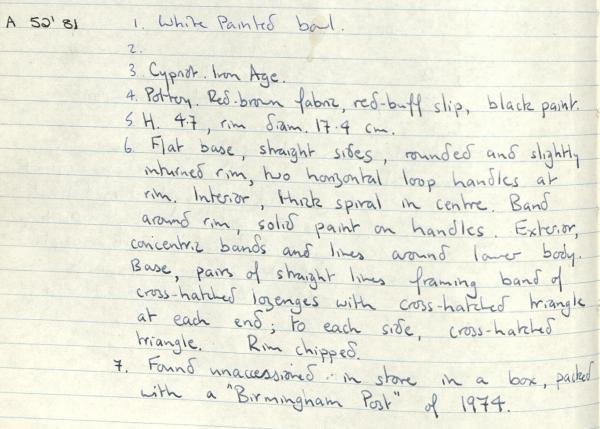 A 52' 81
1. White Painted bowl.
2.
3. Cypriot. Iron Age.
4. Pottery. Red-brown fabric, red-buff slip, black paint.
5. H. 4.7, rim diam. 17.4 cm.
6. Flat base, straight sides, rounded and slightly
inturned rim, two horizontal loop handles at
rim. Interior, thick spiral in centre. Band
around rim, solid paint on handles. Exterior,
concentric bands and lines around lower body.
Base, pairs of straight lines framing band of
cross-hatched lozenges with cross-hatched triangle
at each end; to each side, cross-hatched
triangle. Rim chipped.
7. Found unaccessioned in store in a box, packed
with a "Birmingham Post" of 1974.